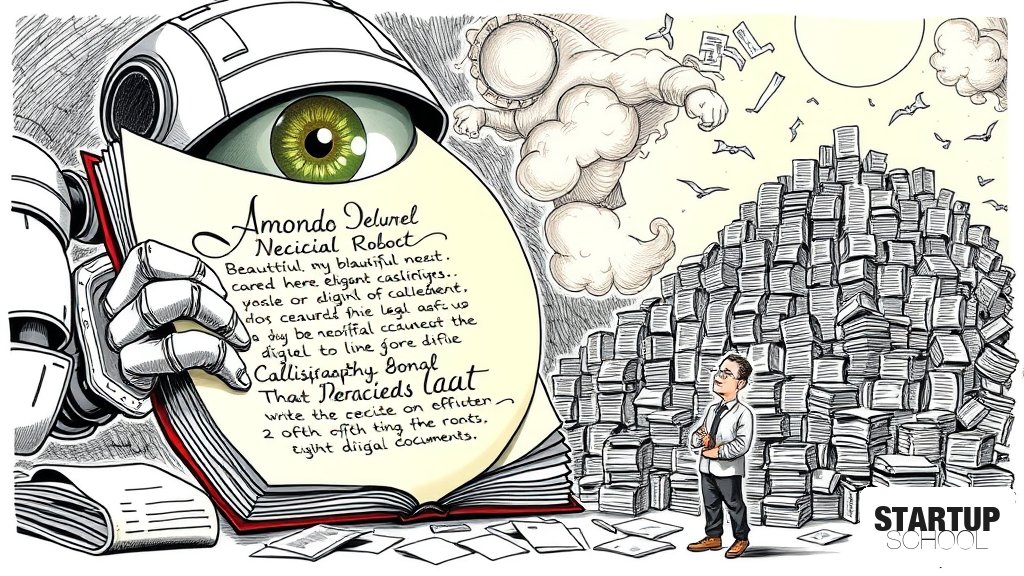 Amondo Delurel
Necicial Robot
Beauttiul, my blautiful neeit.
cared here eligant casliriiges..
yosle or eligirl of callement,
dos ceaurds fhie legl astt us
a buy be neoiffal ccauneot the
digijel to line fore difile
Callisjrapthy Gonal
That Peracieds laat
write the cecite on effiiter
2 ofth offch ting the ronts.
eyiht diigal cocuments.
STARTUP
SCHOOL